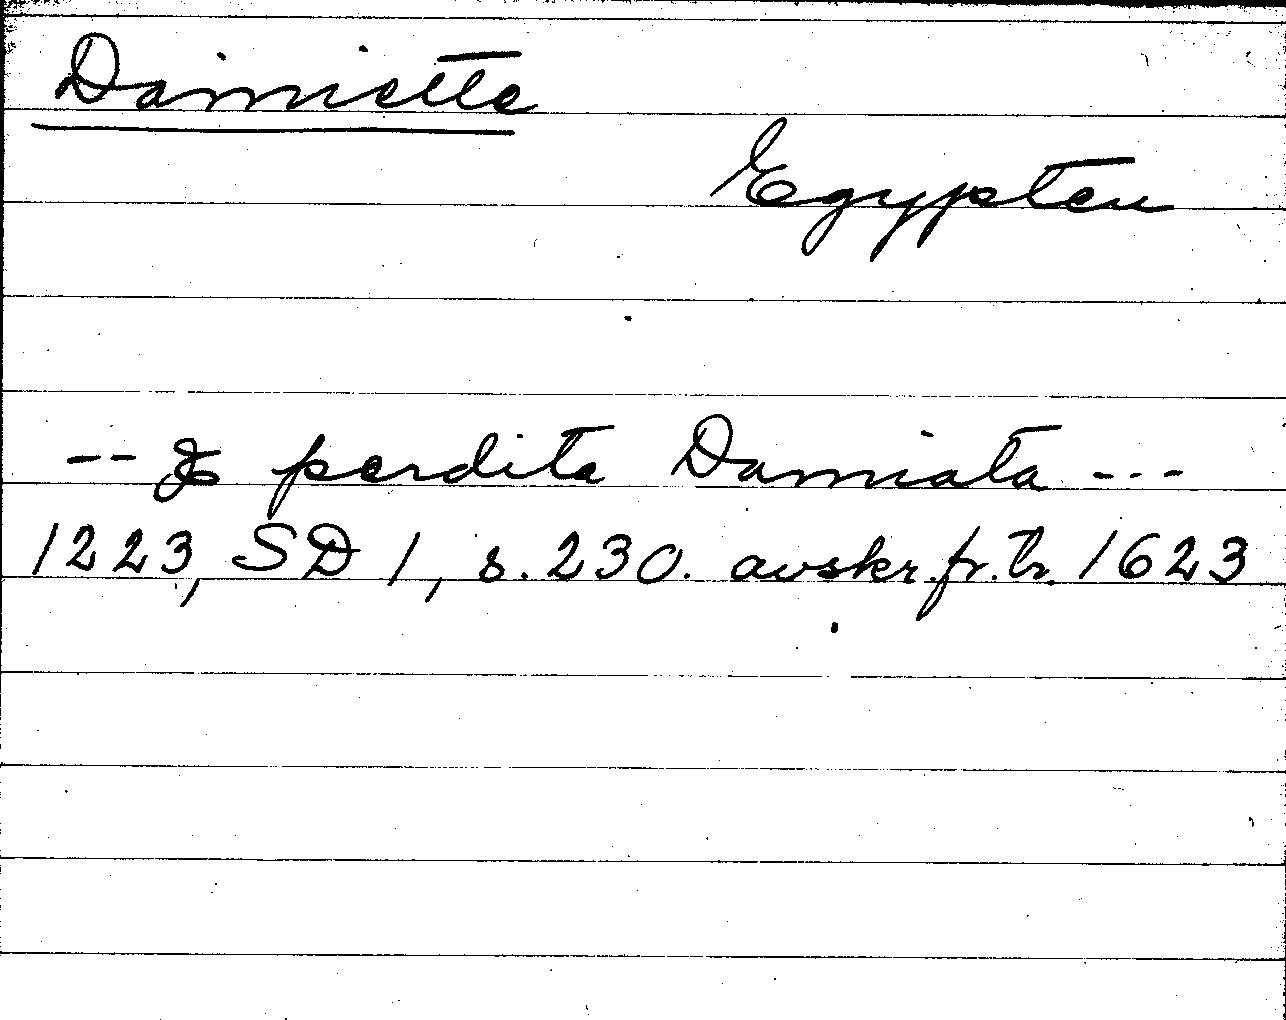 Damiette
Egypten
-- & perdita Damiata ---
1223, SD 1, s. 230. avskr. fr. tr. 1623